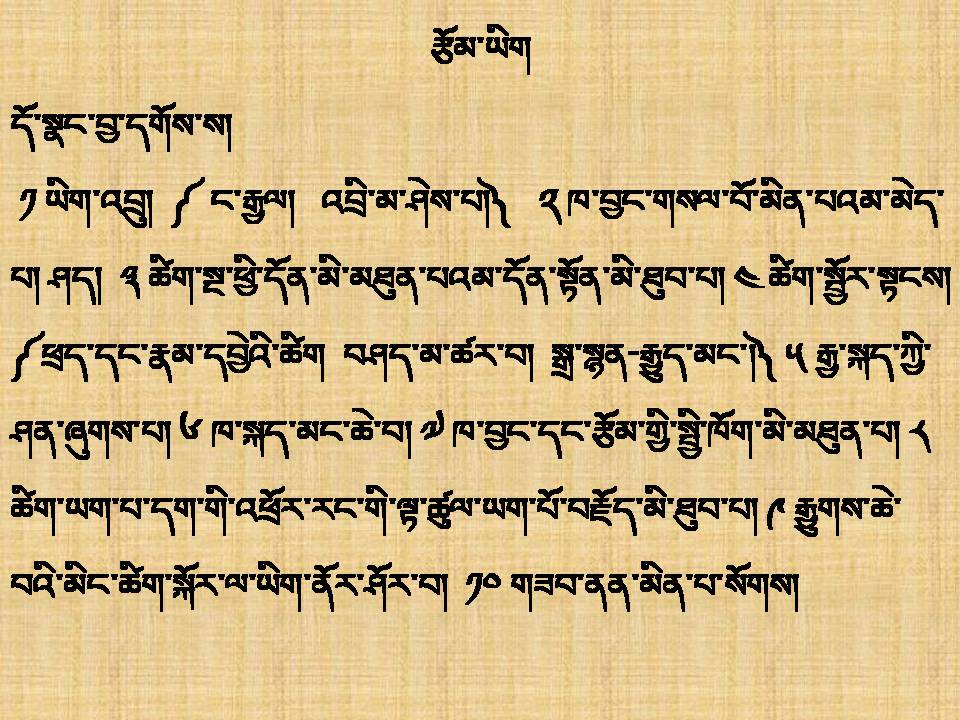 རྩོམ་ཡིག
དོ་སྣང་བྱ་དགོས་ས།
༡ ཡིག་འབྲུ། ༼ ང་རྒྱལ། འབྲི་མ་ཤེས་པ།༽ ༢ ཁ་བྱང་གསལ་པོ་མིན་པའམ་མེད་
པ། ཤད། ༣ ཚིག་སྔ་ཕྱི་དོན་མི་མཐུན་པའམ་དོན་སྟོན་མི་ཐུབ་པ། ༤ ཚིག་སྦྱོར་སྟངས།
༼ཕྲད་དང་རྣམ་དབྱེའི་ཚིག བཤད་མ་ཚར་བ། སྒྲ་སྙན-རྒྱུད་མང་།༽ ༥ རྒྱ་སྐད་ཀྱི་
ཤན་ཞུགས་པ། ༦ ཁ་སྐད་མང་ཆེ་བ། ༧ ཁ་བྱང་དང་རྩོམ་གྱི་སྤྱི་ཁོག་མི་མཐུན་པ། ༨
ཚིག་ཡག་པ་དག་གི་འཕྲོར་རང་གི་ལྟ་ཚུལ་ཡག་པོ་བརྗོད་མི་ཐུབ་པ། ༩ རྒྱུགས་ཆེ་
བའི་མིང་ཚིག་སྐོར་ལ་ཡིག་ནོར་ཤོར་བ། ༡༠ གཟབ་ནན་མིན་པ་སོགས།